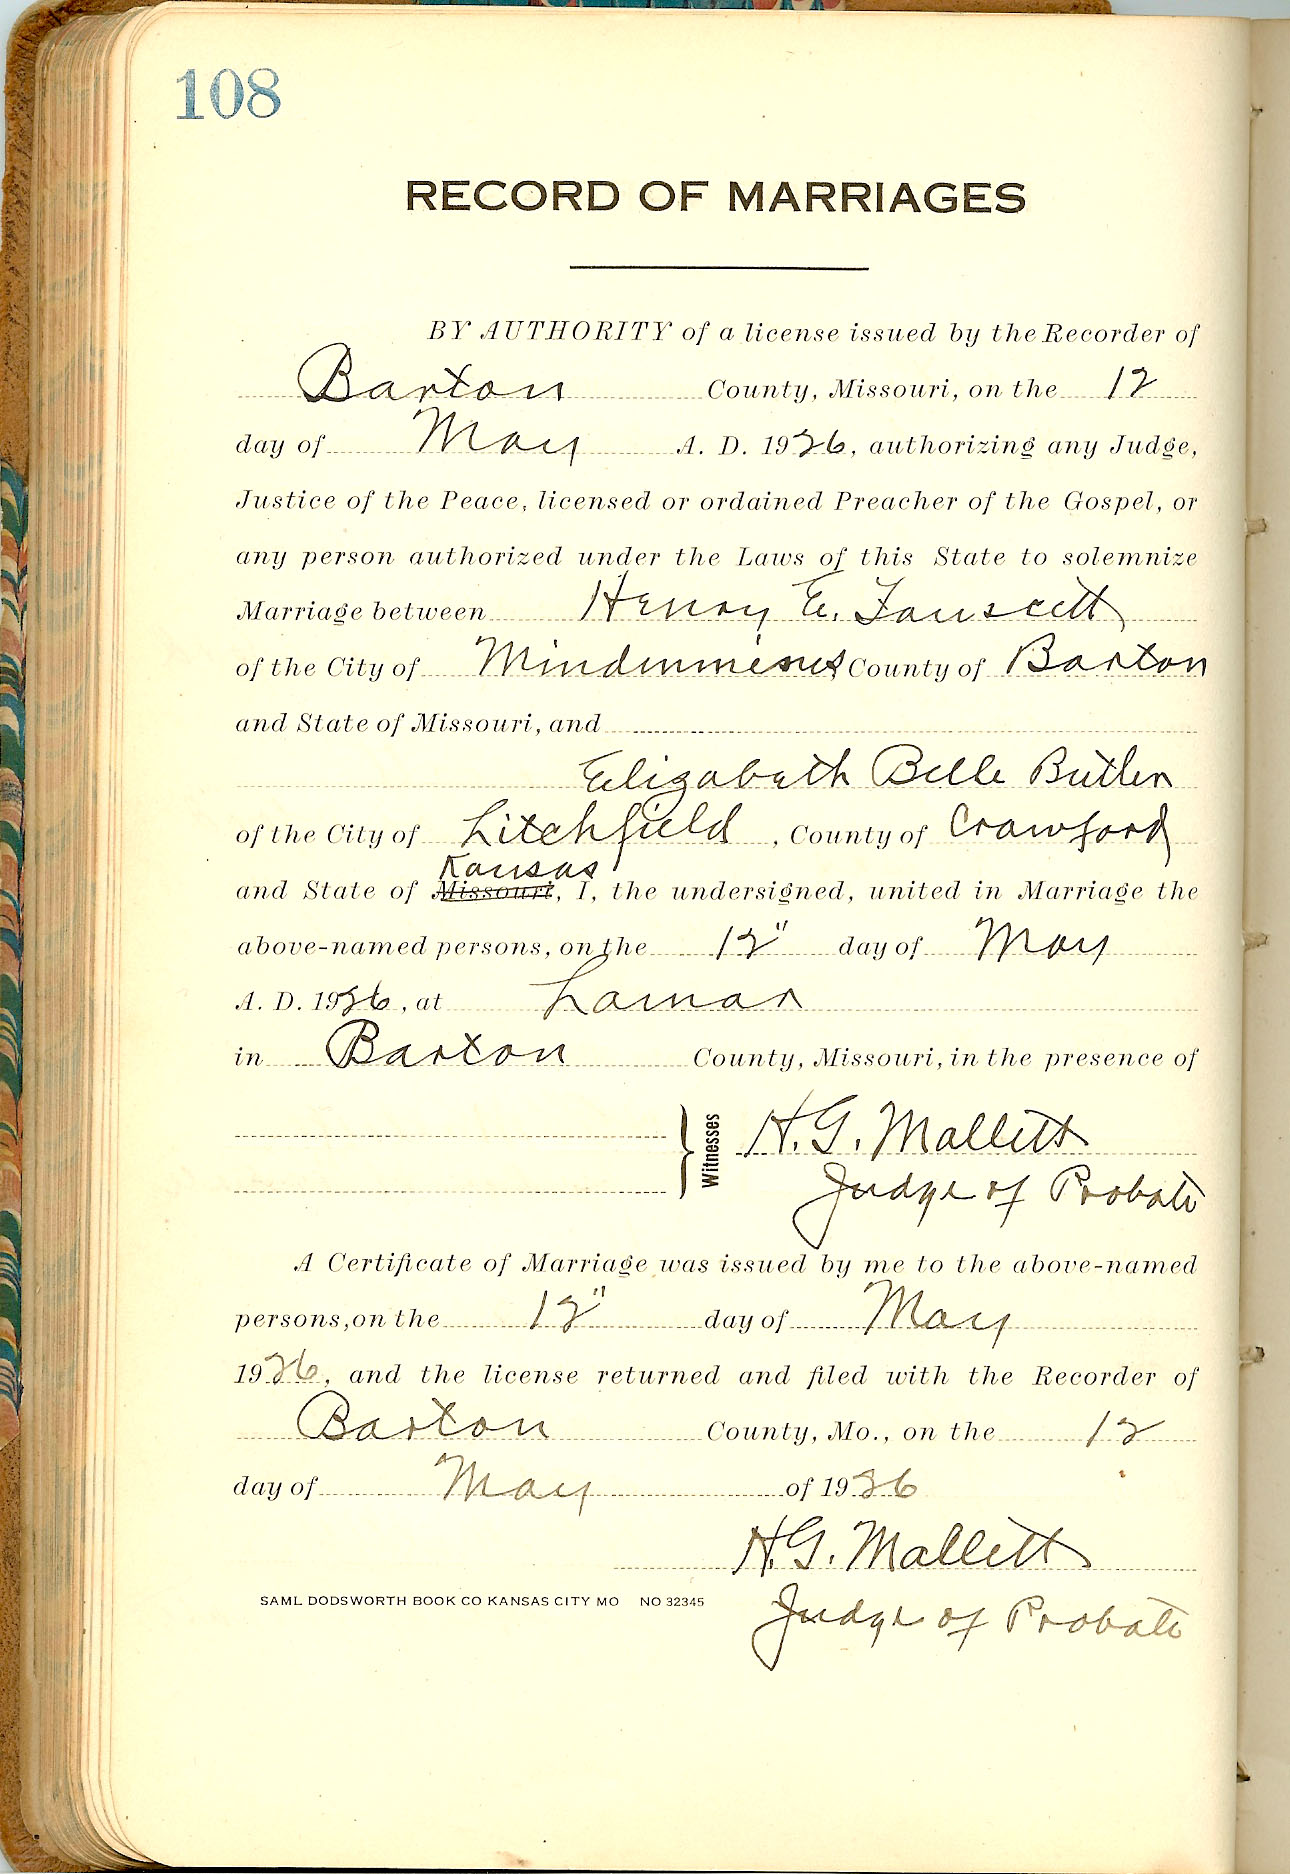 108
RECORD OF MARRIAGES
BY AUTHORITY of a license issued by the Recorder of
Barton County, Missouri, on the 12
day of May A. D. 1926, authorizing any Judge,
Justice of the Peace, licensed or ordained Preacher of the Gospel, or
any person authorized under the Laws of this State to solemnize
Marriage between Henry E. Fauscett
of the City of Mindenmines County of Barton
and State of Missouri, and
Elizabeth Belle Butler
of the City of Litchfield, County of Crawford
Kansas
and State of Missouri, I, the undersigned, united in Marriage the
above-named persons, on the 12" day of May
A. D. 1926, at Lamar
in Barton County, Missouri, in the presence of
Witnesses H. G. Mallett
Judge of Probate
A Certificate of Marriage was issued by me to the above-named
persons, on the 12" day of May
1926, and the license returned and filed with the Recorder of
Barton County, Mo., on the 12
day of May of 1926
H. G. Mallett
SAML DODSWORTH BOOK CO KANSAS CITY MO NO 32345
Judge of Probate